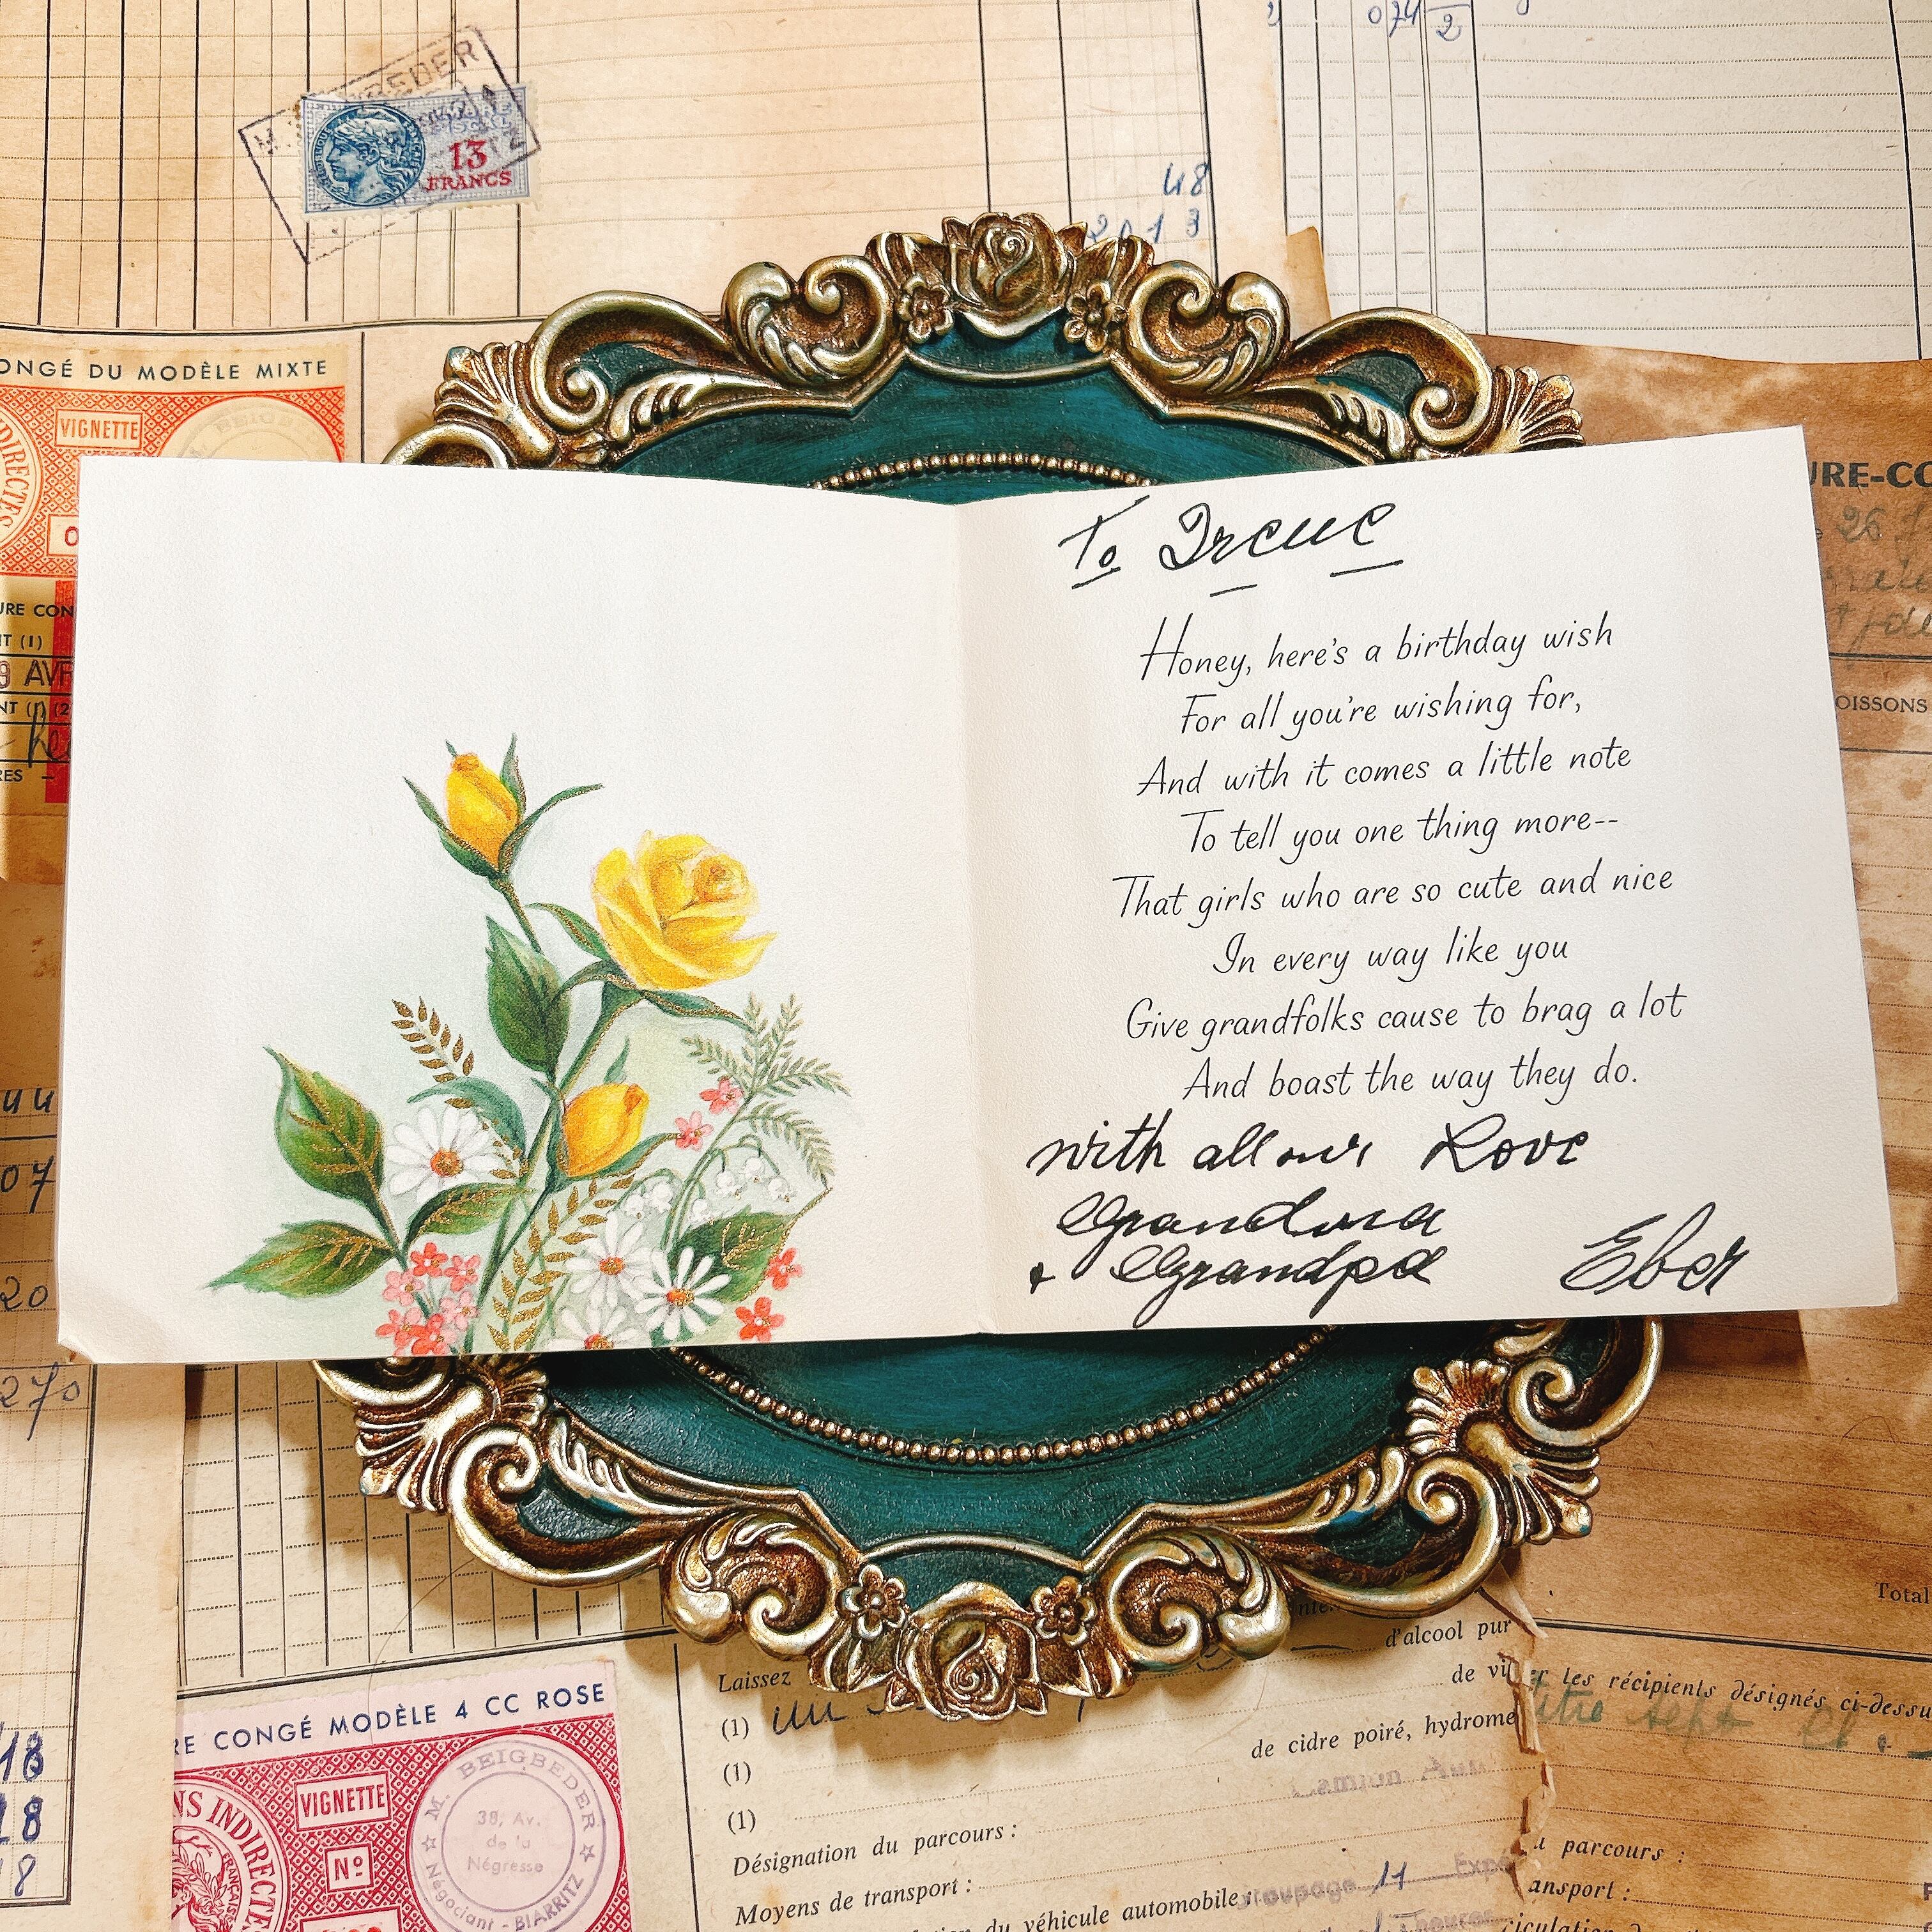 074
2
13
FRANCS
48
2013
CONGÉ DU MODÈLE MIXTE
VIGNETTE
INDIRECTES
URE-CO
26
URE CON
NT (1)
9 AVR
NT (1) (2
RES –
OISSONS
To Irene
Honey, here's a birthday wish
For all you're wishing for,
And with it comes a little note
To tell you one thing more--
That girls who are so cute and nice
In every way like you
Give grandfolks cause to brag a lot
And boast the way they do.
with all our Love
Grandma
& Grandpa Eber
44
07
20
270
18
18
8
Total
d'alcool pur
Laissez
de vi
(1) un
r les récipients désignés ci-dessu
de cidre poiré, hydrome
(1)
(1)
RE CONGÉ MODÈLE 4 CC ROSE
VIGNETTE
NS INDIRECTES
Nº
M. BEIGBEDER
38, Av.
de la
Négresse
Négociant - BIARRITZ
Désignation du parcours :
parcours :
Moyens de transport :
ansport :
11
du véhicule automobile :